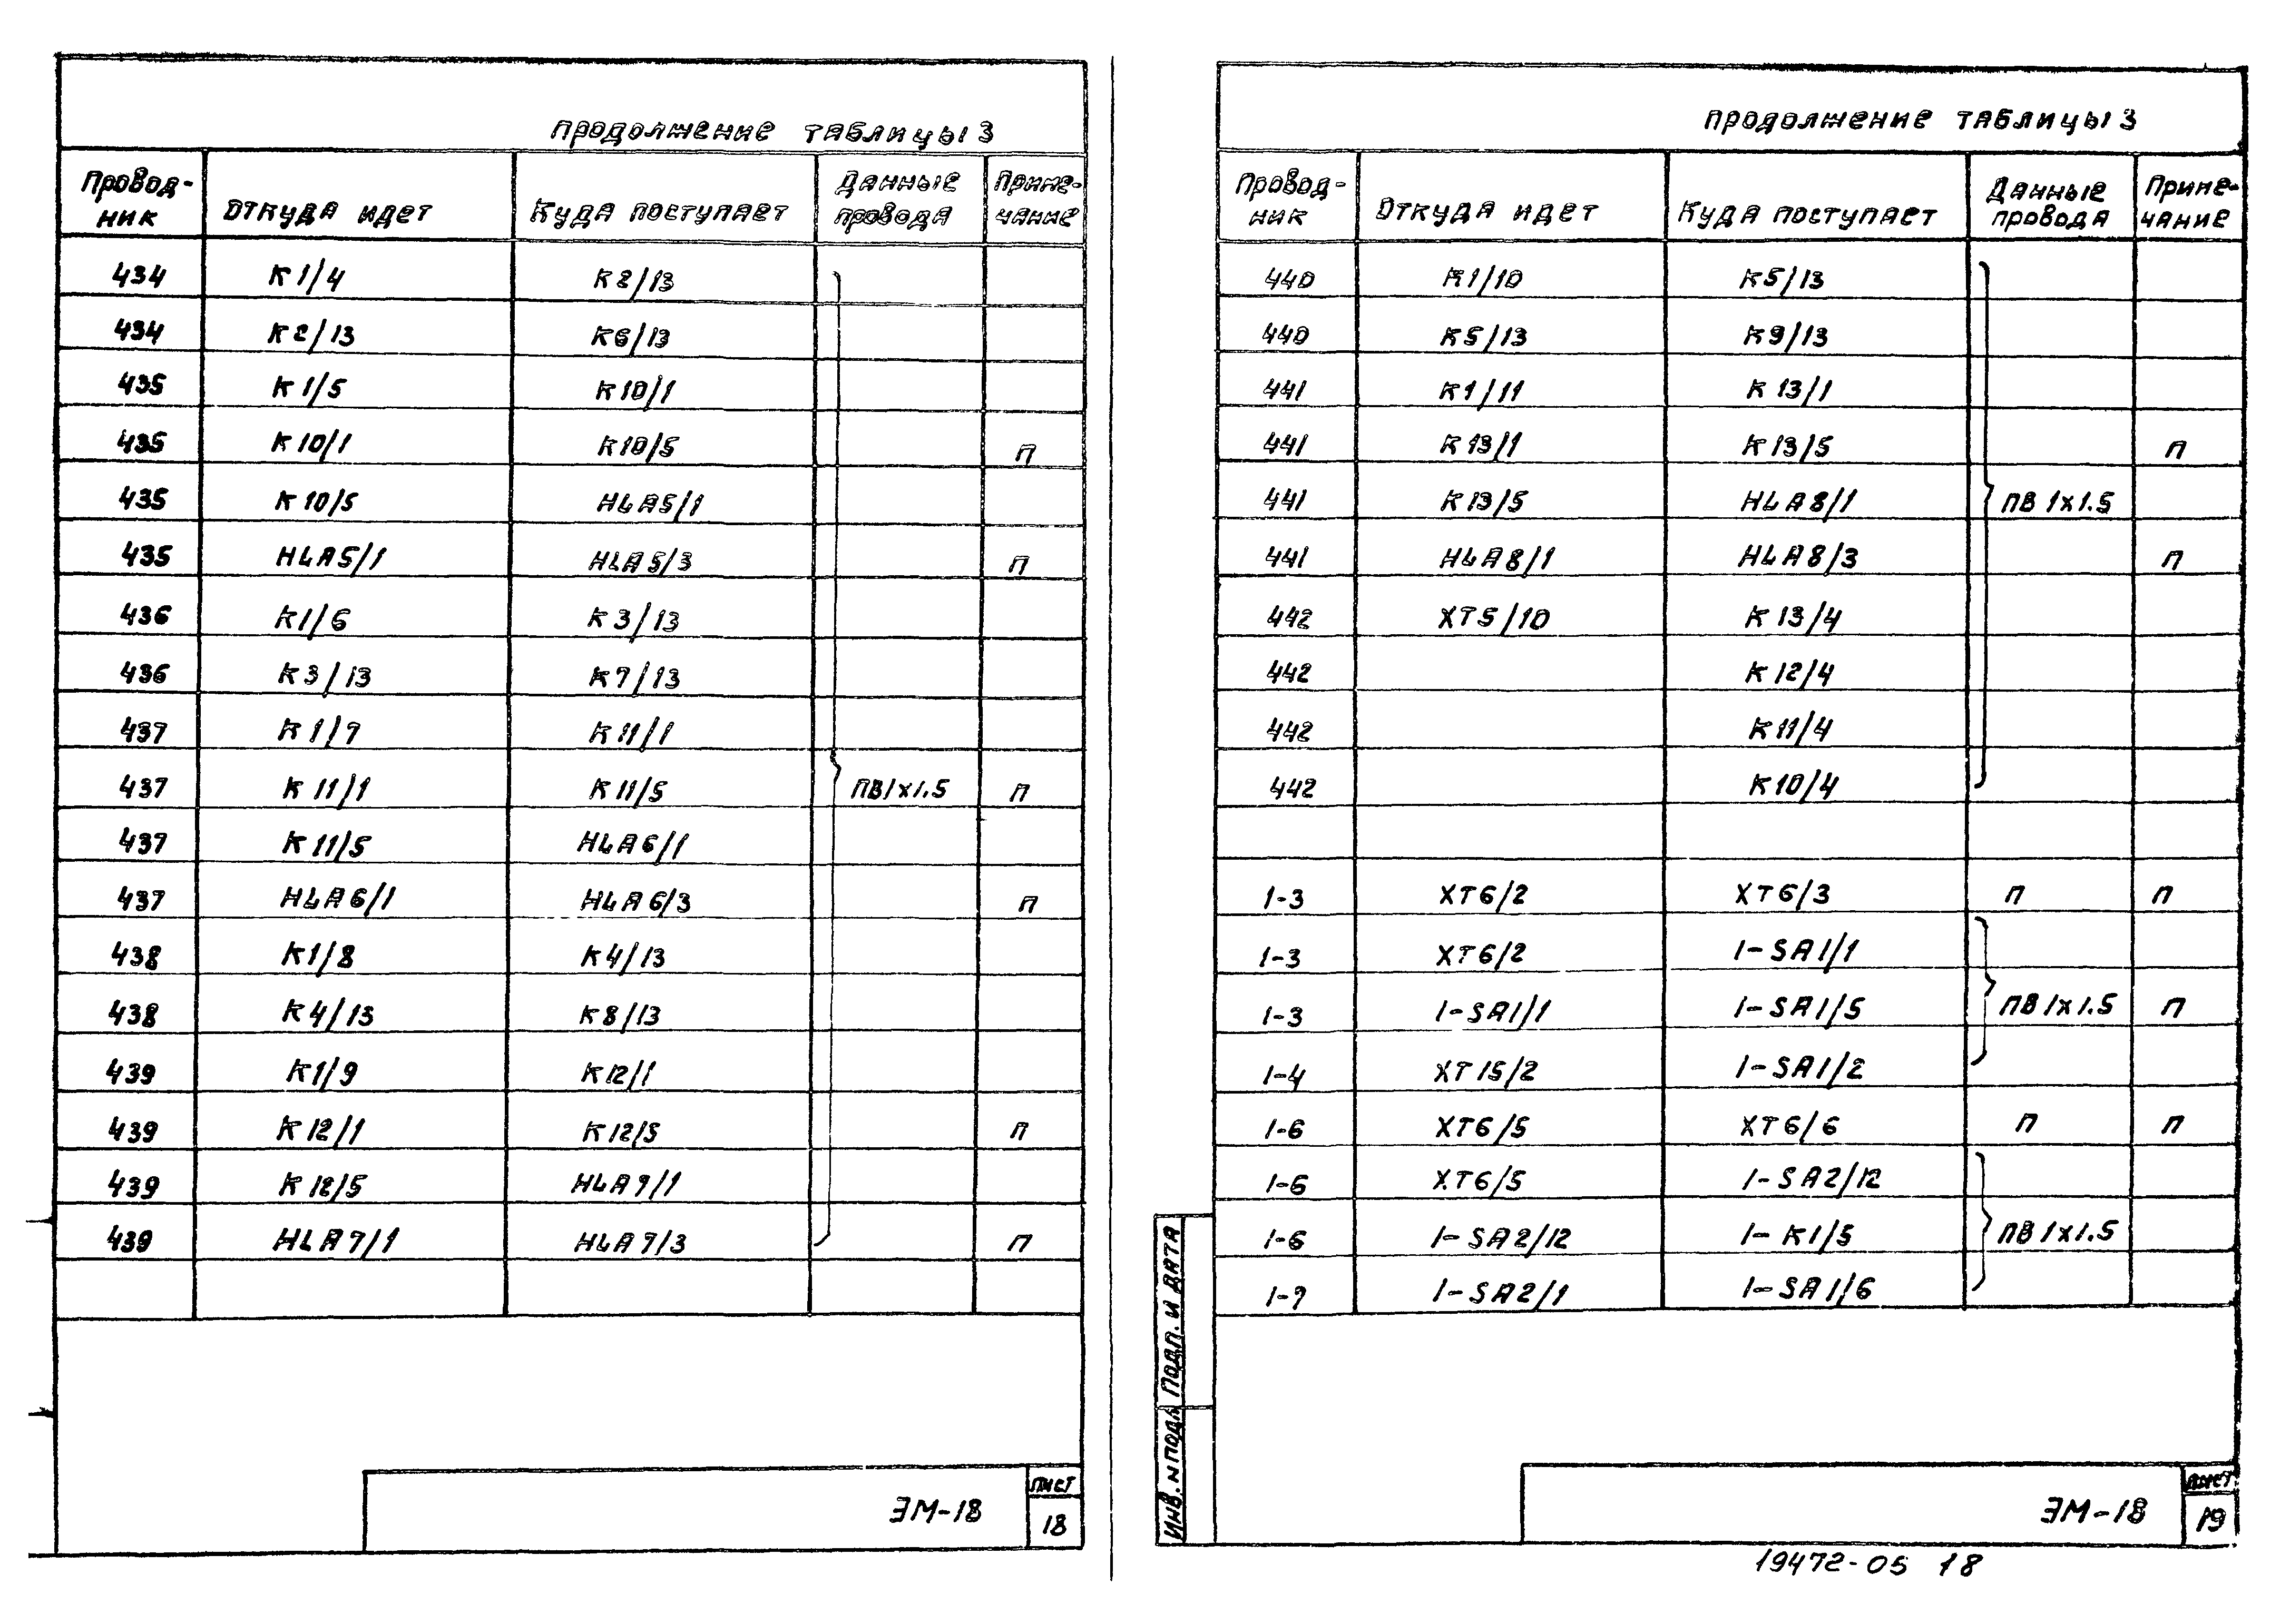 Продолжение таблицы 3
Провод-
ник
Откуда идет
Куда поступает
Данные
провода
Приме-
чание
434 К1/4 К2/13
434 К2/13 К6/13
435 К1/5 К10/1
435 К10/1 К10/5 П
435 К10/5 HLA5/1
435 HLA5/1 HLA5/3 П
436 К1/6 К3/13
436 К3/13 К7/13
437 К1/7 К11/1
437 К11/1 К11/5 ПВ1х1.5 П
437 К11/5 HLA6/1
437 HLA6/1 HLA6/3 П
438 К1/8 К4/13
438 К4/13 К8/13
439 К1/9 К12/1
439 К12/1 К12/5 П
439 К12/5 HLA7/1
439 HLA7/1 HLA7/3 П
ЭМ-18
Лист
18
Продолжение таблицы 3
Провод-
ник
Откуда идет
Куда поступает
Данные
провода
Приме-
чание
440 К1/10 К5/13
440 К5/13 К9/13
441 К1/11 К13/1
441 К13/1 К13/5 П
441 К13/5 HLA8/1 ПВ 1х1.5
441 HLA8/1 HLA8/3 П
442 ХТ5/10 К13/4
442 К12/4
442 К11/4
442 К10/4
1-3 ХТ6/2 ХТ6/3 П П
1-3 ХТ6/2 1-SA1/1
1-3 1-SA1/1 1-SA1/5 ПВ 1х1.5 П
1-4 ХТ15/2 1-SA1/2
1-6 ХТ6/5 ХТ6/6 П П
1-6 ХТ6/5 1-SA2/12
1-6 1-SA2/12 1-К1/5 ПВ 1х1.5
1-7 1-SA2/1 1-SA1/6
Подп. и дата
Инв. N подл
ЭМ-18
Лист
19
19472-05 18